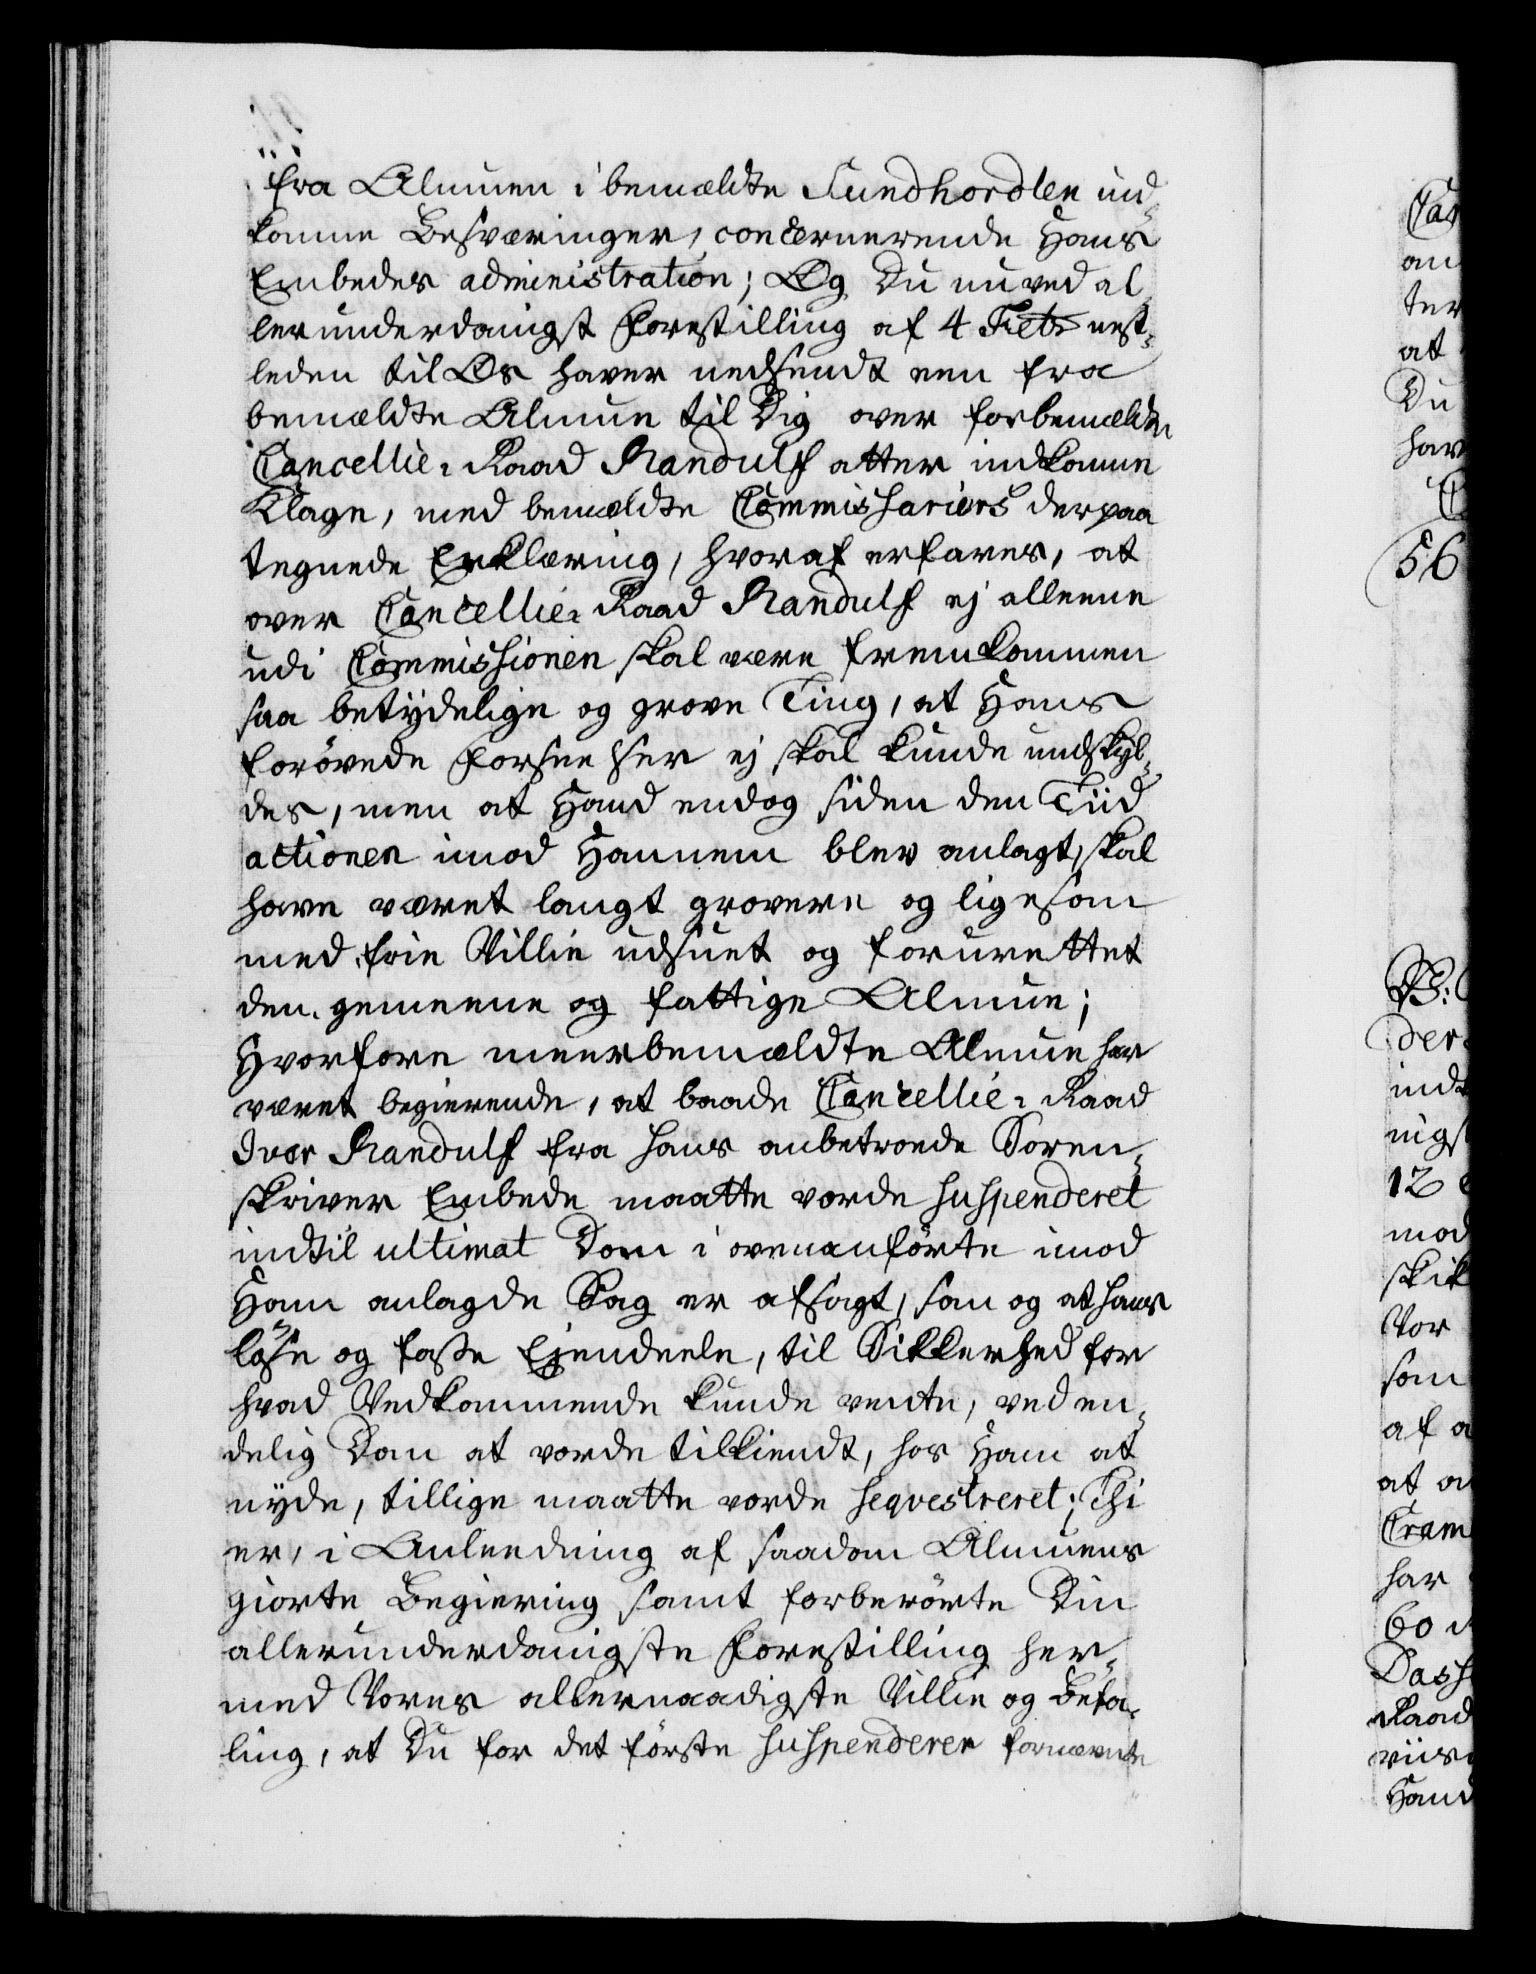 fra Almuen i bemældte Sundhordlen ind¬
komne Besværinger, concernerende Hans
Embedes administration; Og Du nu ved al¬
lerunderdanigst Forestilling af 4 Febr nest¬
leden til Os haver nedsendt een fra
bemældte Almue til Dig over forbemældte
Cancellie-Raad Randulf atter indkomne
Klage, med bemældte Commissariers derpaa
tegnede Erklæring, hvoraf erfares, at
over Cancellie-Raad Randulf ej alleene
udi Commissionen skal være fremkommen
saa betÿdelige og grove Ting, at Hans
forövede Forseelser ej skal kunde undskÿl¬
des, men at Hand endog siden den Tiid
actionen imod Hannem blev anlagt, skal
have været langt grovere og ligesom
med frie Villie udsuet og forurettet
den gemeene og fattige Almue;
Hvorfore meerbemældte Almue har
været begierende, at baade Cancellie-Raad
Iver Randulf fra Hans anbetroede Soren¬
skriver Embede maatte vorde suspenderet
indtil ultimat Dom i ovenanförte imod
Ham anlagde Sag er afsagt, som og at hans
löse og faste Ejendeele, til Sikkerhed for
hvad Vedkommende kunde vente, ved en¬
delig Dom at vorde tilkiendt, hos Ham at
nÿde, tillige maatte vorde seqvestreret; Thi
er, i Anleedning af saadan Almuens
giorte Begiering samt forberörte Din
allerunderdanigste Forestilling her¬
med Vores allernaadigste Villie og Befa¬
ling, at Du for det förste suspenderer fornævnte
an
ter
at
Du
hav
56
der
ind
nigst
12
mod
skik
Vor
som
af a
at
har
60
Raad
Hand